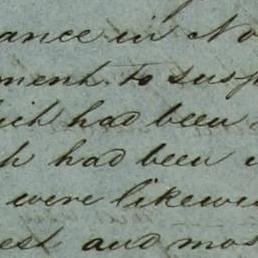 ance in No
ment to susp
ich had been
h had been
were likewis
est and mos